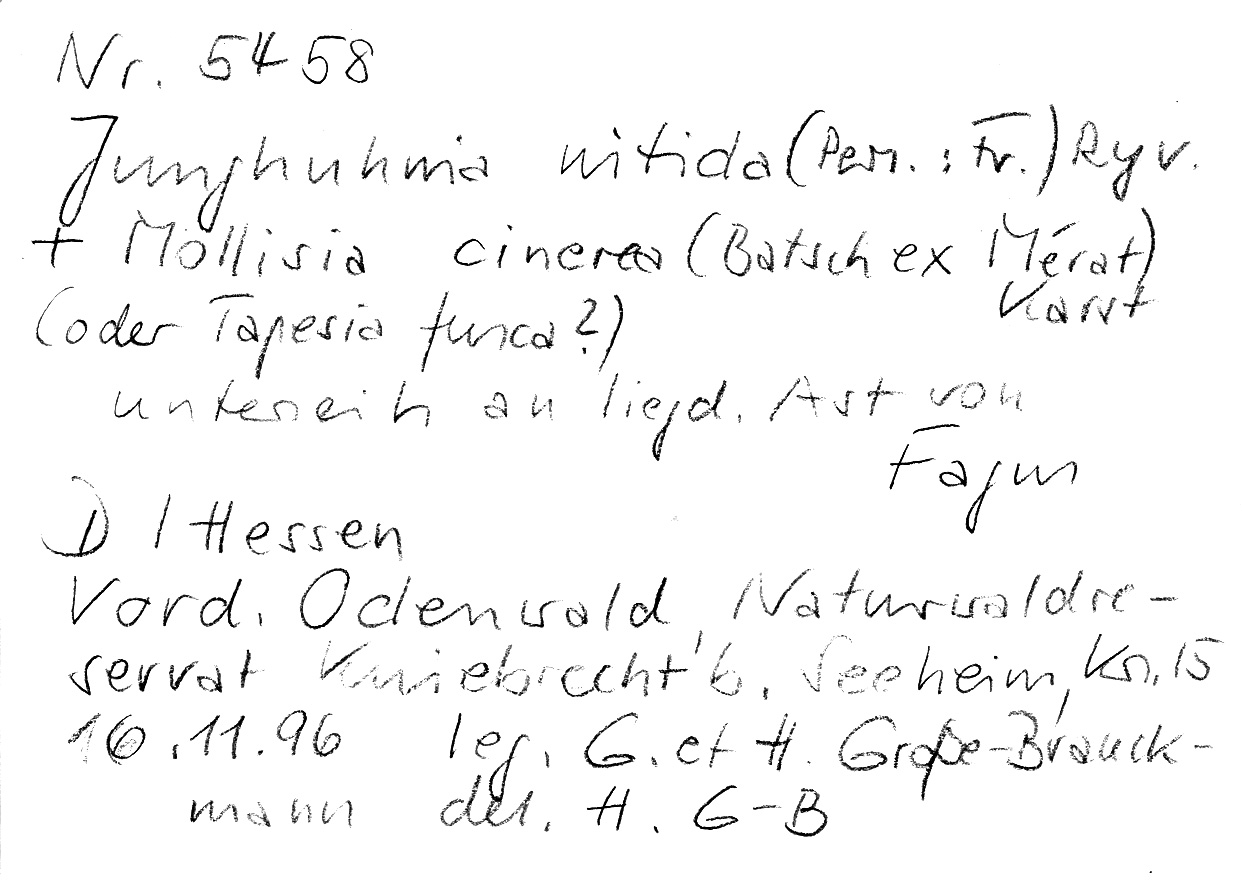 Nr. 5458
Junghuhnia nitida (Pers. : Fr.) Ryv.
+ Mollisia cinerea (Batsch ex Mérat)
Karst
(oder Tapesia fusca?)
unterseits an liegd. Ast von
Fagus
D / Hessen
Vord. Odenwald, Naturwaldre-
servat Kniebrecht b. Seeheim, Kn. 15
16.11.96 leg. G. et H. Große-Brauck-
mann det. H. G-B